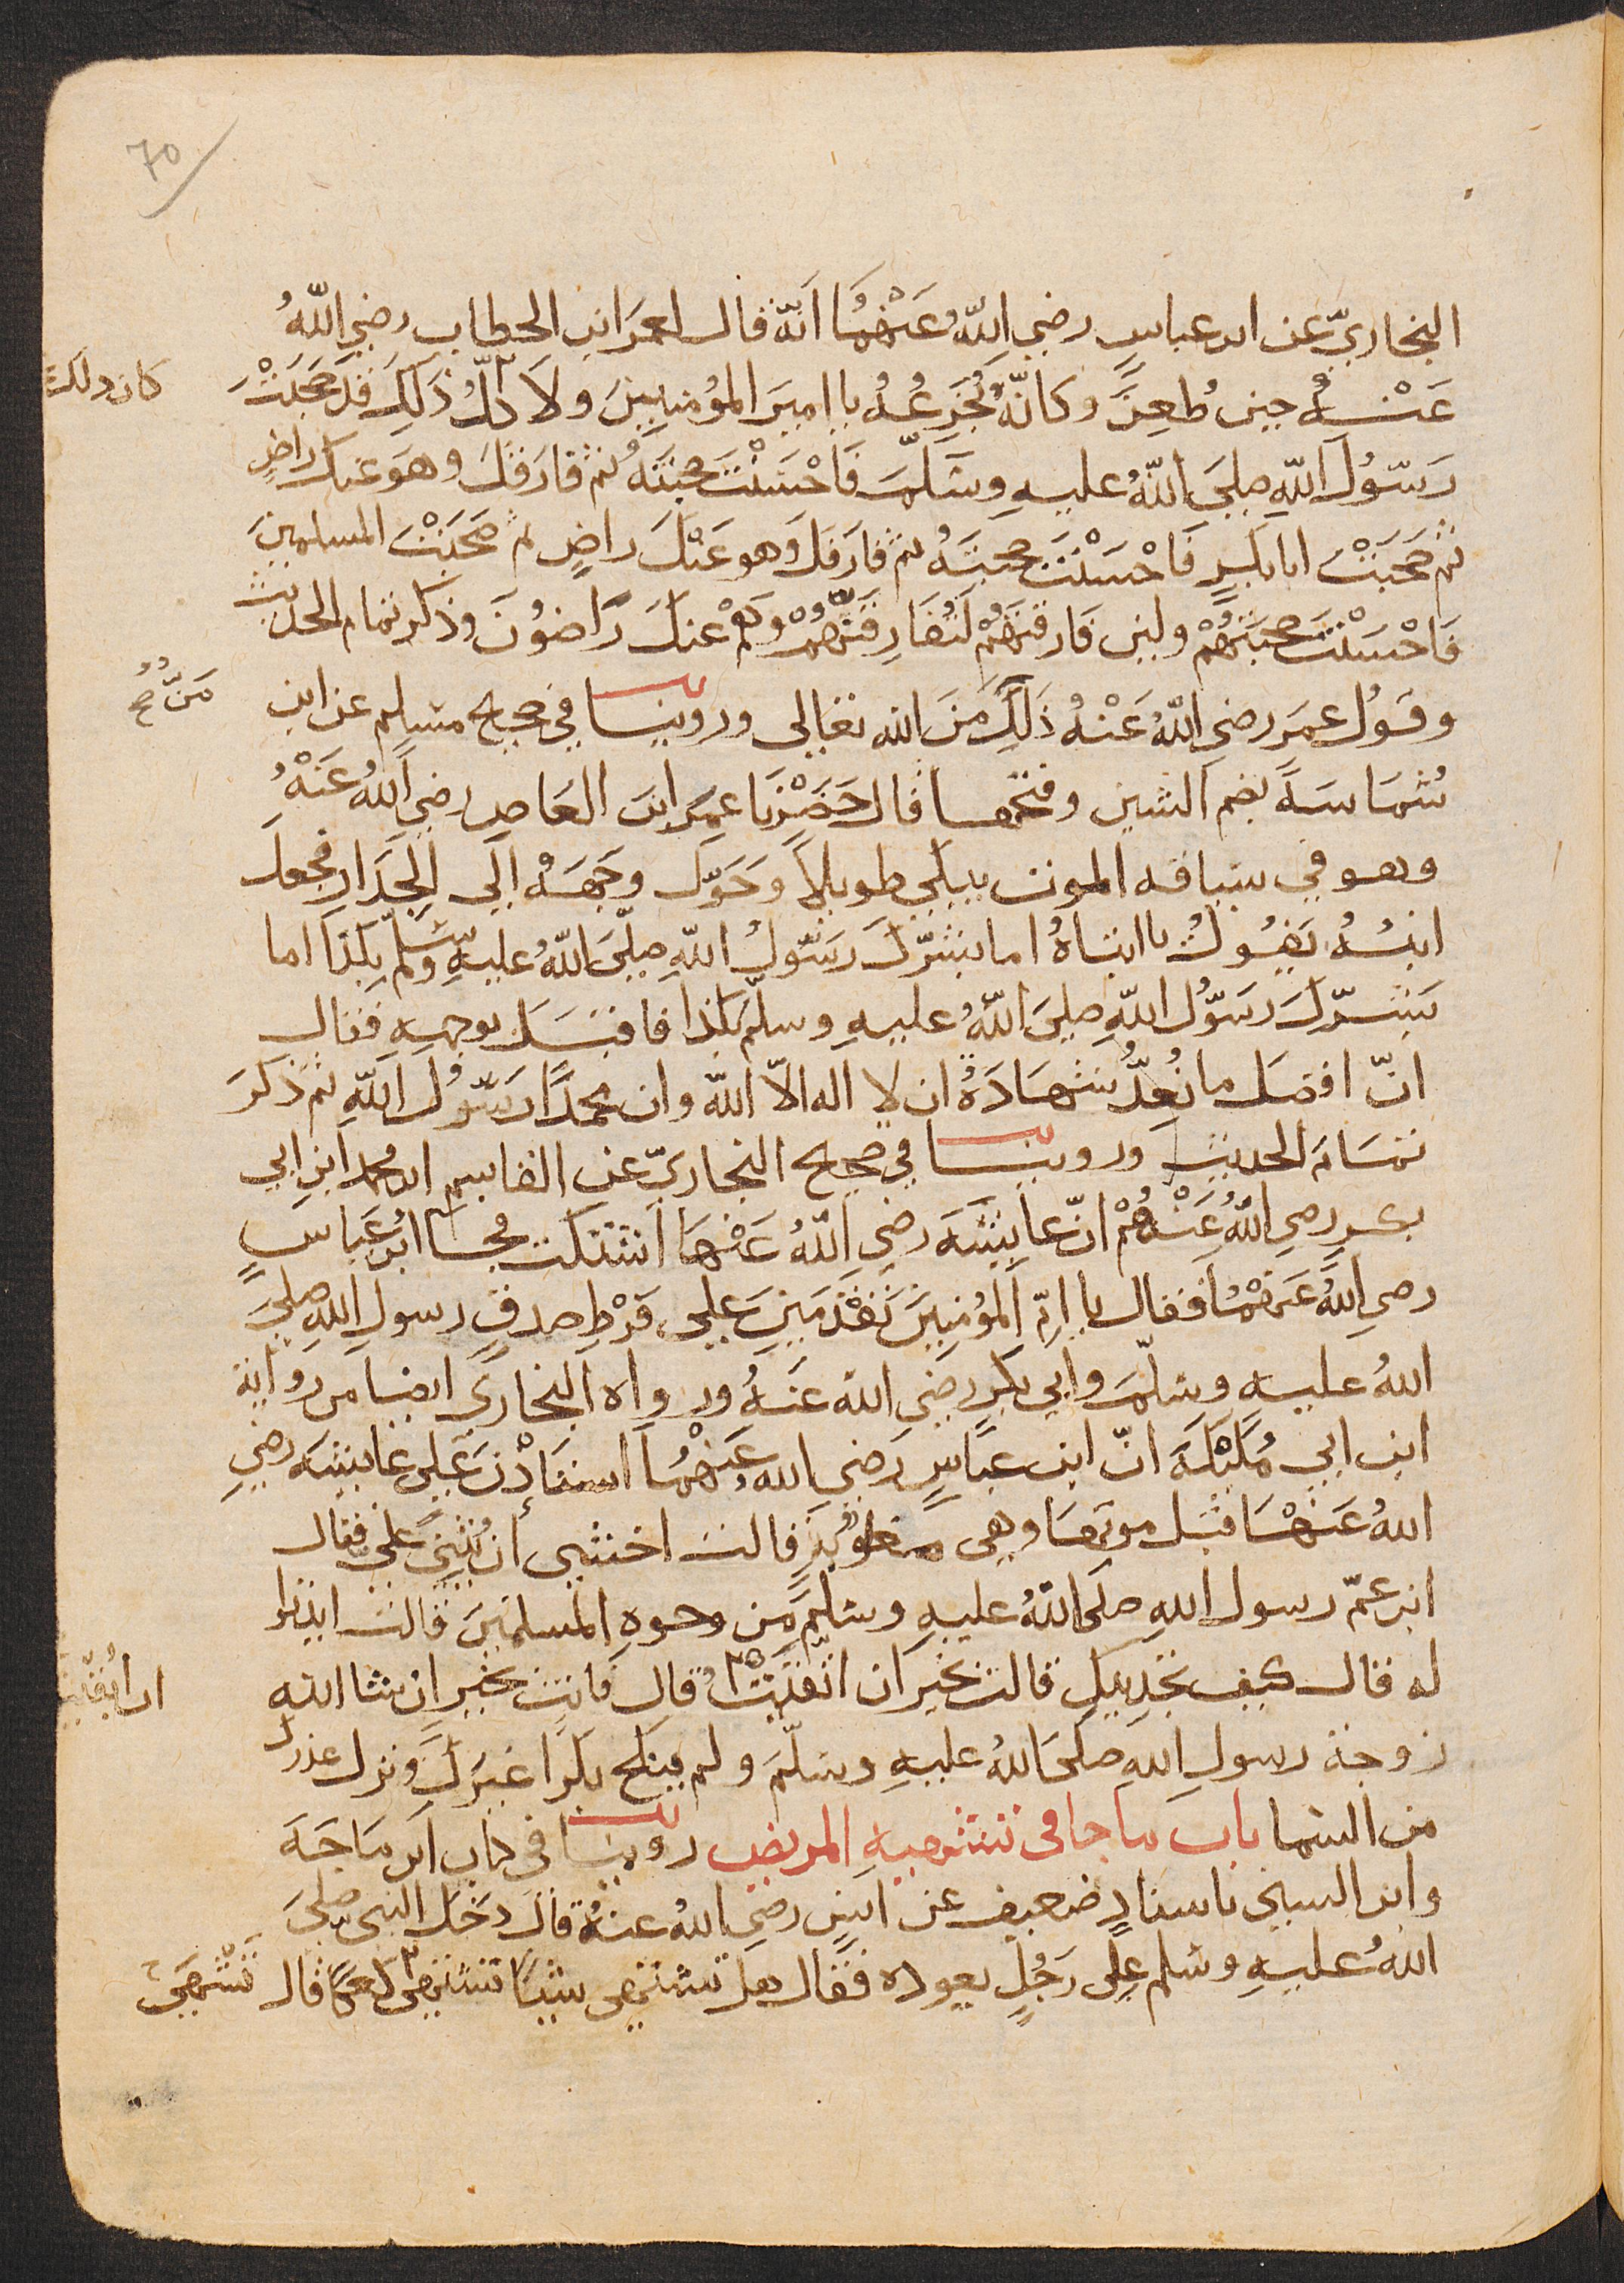 70
البخاريّ عن ابن عباسٍ رضي اللّٰهُ عَنْهُمَا انّه قال لعمرَ ابن الخطاب رضي اللّٰهُ
عَنْهُ حين طُعِنَ وكانّه يُجَزِّعُهُ يا اميرَ المؤمنيينَ ولا كلُّ ذَلِكَ قد صَحِبْتَ
كان ذلك
رَسُولَ اللّٰهِ صلى اللّٰهُ عليهِ وسَلّمَ فَاحْسَنْتَ صحبتَهُ ثم فارقكَ وهوَ عنك راضٍ
ثم صَحِبْتَ ابا بكرٍ فَاحْسَنْتَ صحبتَهُ ثم فارقكَ وهو عَنْكَ راضٍ ثم صَحِبْتَ المسلمينَ
فَاحْسَنْتَ صحبتَهُمْ ولين فارقتَهُمْ لَتُفَارِقَنَّهُمْ وهُمْ عنكَ رَاضُونَ وذكر تمام الحديث
وقَولُ عمرَ رضي اللّٰهُ عَنْهُ ذَلِكَ مِنَ الله تعالى وروينا في صحيح مسلم عن ابن
مَنٌّ صح
شُمَاسَةَ بضم الشين وفتحها قال حَضَرْنَا عمرَ ابن العَاصِ رضي اللّٰهُ عَنْهُ
وهو في سياقه الموت يبكي طويلاً وَحَوّل وجهَهُ إلى الجَدَارِ فجعل
ابنهُ يَقُولُ يا ابتاهُ اما بشّرَكَ رَسُولُ اللّٰهِ صلّى اللّٰهُ عليهِ وسلّم بِكذا اما
بَشّرَكَ رَسُولُ اللّٰهِ صلىَ اللّٰهُ عليهِ وسلّم بكذا فاقبَلَ بوجهِهِ فقال
انّ افضَلَ ما نُعِدُّ شهادَةُ ان لا اله الاّ اللّٰه وان محمّدًا رَسُولُ اللّٰهِ ثم ذَكرَ
تمَامَ الحديث وروينا في صحيح البخاريّ عن القاسم ابن محمد ابن ابي
بكرٍ رضي اللّٰهُ عَنْهُمْ انّ عايشَةَ رضي اللّٰهُ عَنْهَا اشتكت فجا ابْن عَباسٍ
رضي اللّٰهُ عَنْهُمَا فقال يا امّ المؤمنينَ تَقْدَمينَ على فَرْطِ صدقٍ رسول اللّٰه صلىَ
اللّٰهُ عليه وسلّمَ وابي بكرٍ رضي الله عَنهُ ورواه البخاري ايضا من رواية
ابن ابي مُلَيْكَةَ انّ ابن عبّاسٍ رَضي الله عَنْهُمَا استَاْذنَ عَلى عايشَه رضي
اللّٰهُ عَنهَا قبْل موتهَا وهى مغلوبَةٌ قالت اخشى أن يُثْنِيَ عليّ فقال
ابن عمّ رسول اللّٰهِ صلى اللّٰهُ عليهِ وسلمَ مِن وجوهِ المسلمينَ قالت ايذنوا
له قال كيف تجدينكِ قالت بخير ان اتّقَيْتُ قال فانتِ بخيرٍ ان شا اللّٰه
زوجة رسولِ اللّٰهِ صلىَ اللّٰهُ عليهِ وسلّمَ ولم ينكح بكرًا غيرَكِ ونزل عذرك
من السّما باب ما جا في تشهيهِ المريض روينا في كتاب ابن مَاجَهَ
وابن السني باسنادٍ ضعيف عن انسٍ رضي اللّٰهُ عنهُ قالَ دَخَلَ النبي صلىَ
اللّٰهُ عليهِ وسلم على رَجُلٍ يعوده فقال هل تشتهى شيئًا تشتهى كعكًا قال